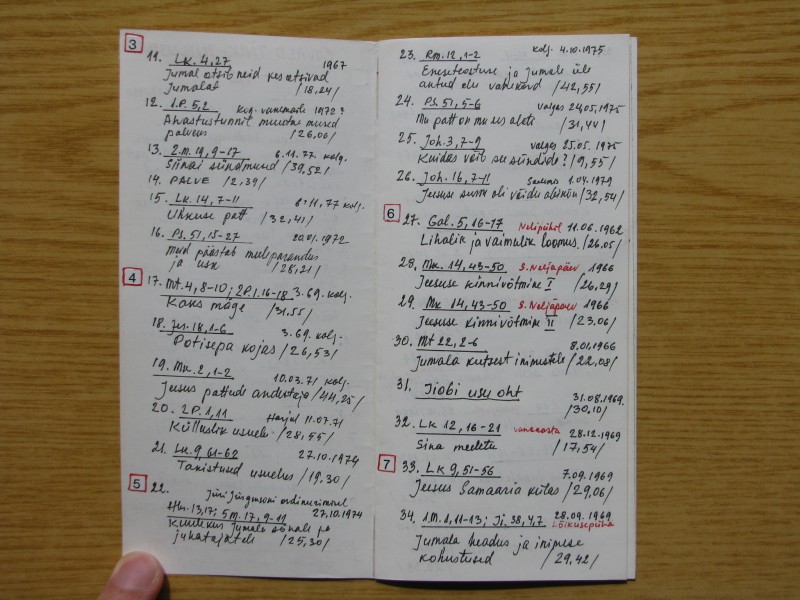 3
11. Lk. 4,27 1967
Jumal otsib neid kes otsivad
Jumalat /18,24/
12. 1.P. 5,2 1972?
muudme mured
palveus /26,06/
13. 2.M. 19,9-17 6.11.77. kolg.
Siinai sündmused /39,52/
14. PALVE /2,39/
15. Lk. 14,7-11 6.11.77 kolg.
Uhkuse patt /32,41/
16. Ps. 51,15-27 20.01.1972
Meid päästab meeleparandus
ja usk /28,21/
4
17. Mt. 4,8-10; 2P.1.16-18 3.69. kolg.
Kaks mäge /31,55/
18. Jer. 18,1-6 3.69. kolg.
Potisepa kojas /26,53/
19. Mk. 2,1-2 10.03.71 kolg.
Jeesus pattude andestaja /44,25/
20. 2P. 1,11 Harjul 11.07.71
Külluslik usuelu /28,55/
21. Lk. 9,61-62 27.10.1974
Takistused usuelus /19,30/
5
22. Jüri Jürgensoni ordineerimisel
Hbr. 13,17; 5M. 17,9-11 27.10.1974
Kuulekus Jumala sõnale ja
juhatajatele /25,30/
23. Rm. 12,1-2 kolg. 4.10.1975
Eneseteostuse ja Jumala üle
antud elu vahekord /42,55/
24. Ps. 51,5-6 Valgas 24.05.1975
Mu patt on mu ees alati /31,44/
25. Joh. 3,7-9 Valgas 25.05.1975
Kuidas võib see sündida? /9,55/
26. Joh. 16,7-11 1.04.1979
Jeesuse surm oli võidu /32,54/
6
27. Gal. 5,16-17 Nelipühil 11.06.1962
Lihalik ja vaimulik loomus /26,05/
28. Mk. 14,43-50 S. Neljapäev 1966
Jeesuse kinnivõtmine I /26,29/
29. Mk 14,43-50 S. Neljapäev 1966
Jeesuse kinnivõtmine II /23,06/
30. Mt 22,2-6 8.01.1966
Jumala kutsest inimestele /22,08/
31. Iiobi usu oht 31.08.1969.
/30,10/
32. Lk 12,16-21 vanaaasta 28.12.1969
Sina meeletu /17,54/
7
33. Lk 9,51-56 7.09.1969
Jeesus Samaaria külas /29,06/
34. 1.M. 1,11-13; Ii. 38,4,7 28.09.1969
Lõikusepüha
Jumala headus ja inimese
kohustused /29,42/